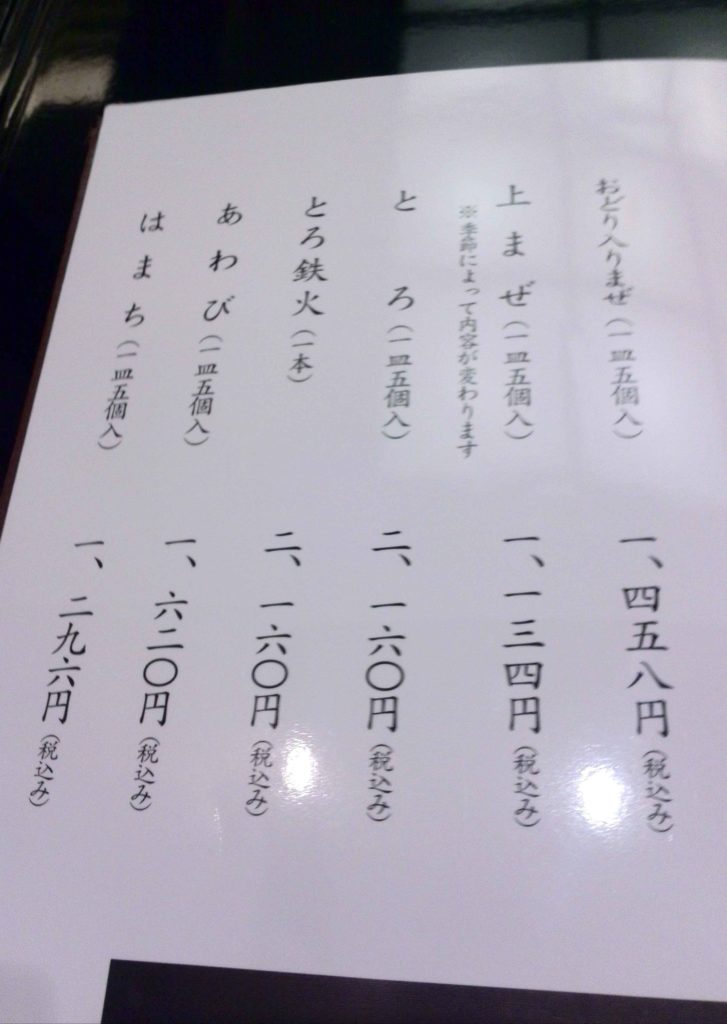 おどり入りまぜ(一皿五個入) 一、四五八円(税込み)
上まぜ(一皿五個入) 一、一三四円(税込み)
※季節によって内容が変わります
とろ(一皿五個入) 二、一六〇円(税込み)
とろ鉄火(一本) 二、一六〇円(税込み)
あわび(一皿五個入) 一、六二〇円(税込み)
はまち(一皿五個入) 一、二九六円(税込み)